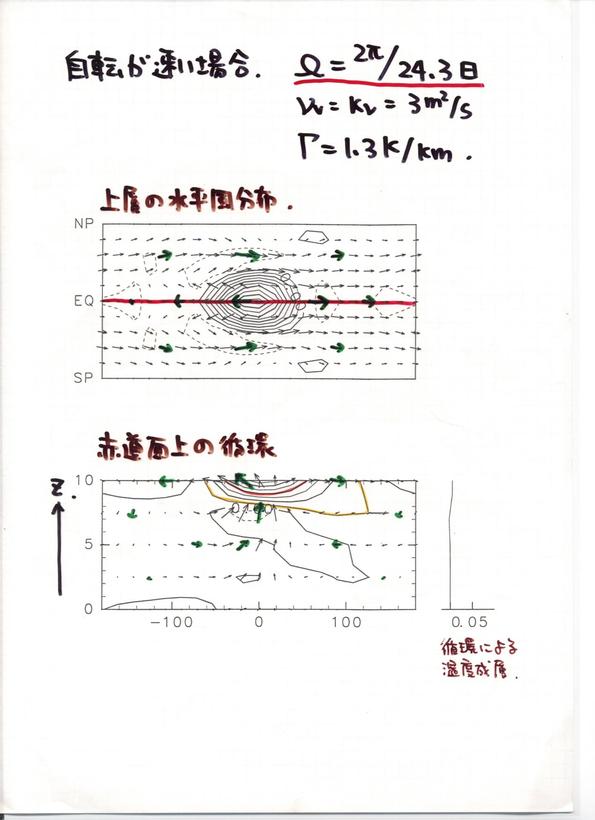 自転が速い場合.
Ω = 2π/24.3日
νv = kv = 3m²/s
Γ = 1.3K/km.
上層の水平風分布.
NP
EQ
SP
赤道面上の循環
z.
10
5
0
-100 0 100
0.05
循環による
温度成層.